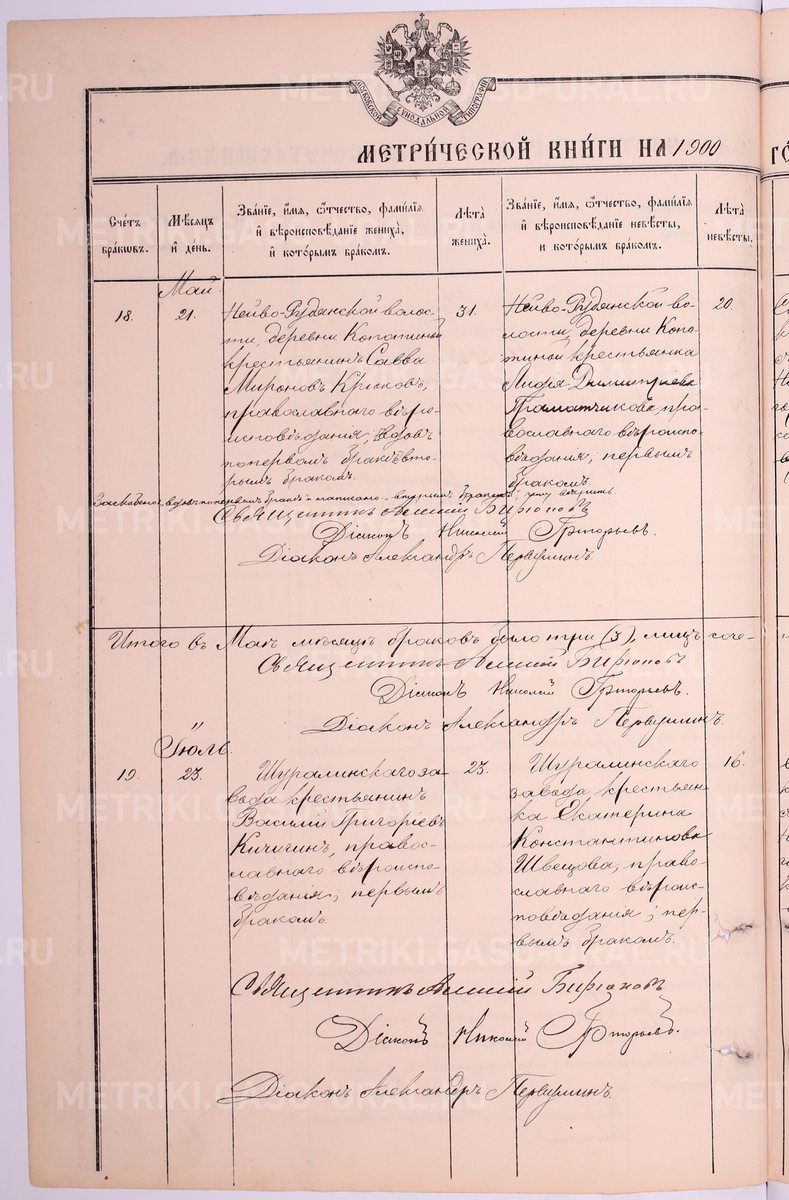 МОСКОВСКОЙ СѴНОДАЛЬНОЙ ТИПОГРАФІИ
МЕТРИ́ЧЕСКОЙ КНИ́ГИ НА 1900
ГО
Сче́тъ бра́кѡвъ.
Мѣ́сѧцъ и҆ де́нь.
Зва́нїе, и҆́мѧ, ѻ҆́тчество, фами́лїѧ и҆ вѣроисповѣ́данїе жениха̀, и҆ кото́рымъ бра́комъ.
Лѣ́та жениха̀.
Зва́нїе, и҆́мѧ, ѻ҆́тчество, фами́лїѧ и҆ вѣроисповѣ́данїе невѣ́сты, и҆ кото́рымъ бра́комъ.
Лѣ́та невѣ́сты.
Май
18.
21.
Нейво-Рудянской волос-
ти, деревни Копотиной
крестьянинъ Савва
Мироновъ Крюковъ,
православнаго вѣро-
исповѣданія, вдовъ
по первомъ бракѣ вто-
рымъ бракомъ.
31.
Нейво-Рудянской во-
лости, деревни Копо-
тиной крестьянка
Лидія Димитріева
Граматчикова, пра-
вославнаго вѣроиспо-
вѣданія, первымъ
бракомъ.
20.
Священникъ Алексій Бирюковъ
Діаконъ Николай Григорьевъ.
Діаконъ Александръ Первушинъ.
Итого въ Маѣ мѣсяцѣ браковъ было три (3), лицъ соче-
Священникъ Алексій Бирюковъ
Діаконъ Николай Григорьевъ.
Діаконъ Александръ Первушинъ.
"
Іюль.
19.
23.
Шуралинскаго за-
вода крестьянинъ
Василій Григоріевъ
Кичигинъ, правос-
лавнаго вѣроиспо-
вѣданія, первымъ
бракомъ.
23.
Шуралинскаго
завода крестьян-
ка Екатерина
Константинова
Швецова, право-
славнаго вѣроис-
повѣданія, пер-
вымъ бракомъ.
16.
Священникъ Алексій Бирюковъ
Діаконъ Николай Григорьевъ.
Діаконъ Александръ Первушинъ.
METRIKI.GASO-URAL.RU